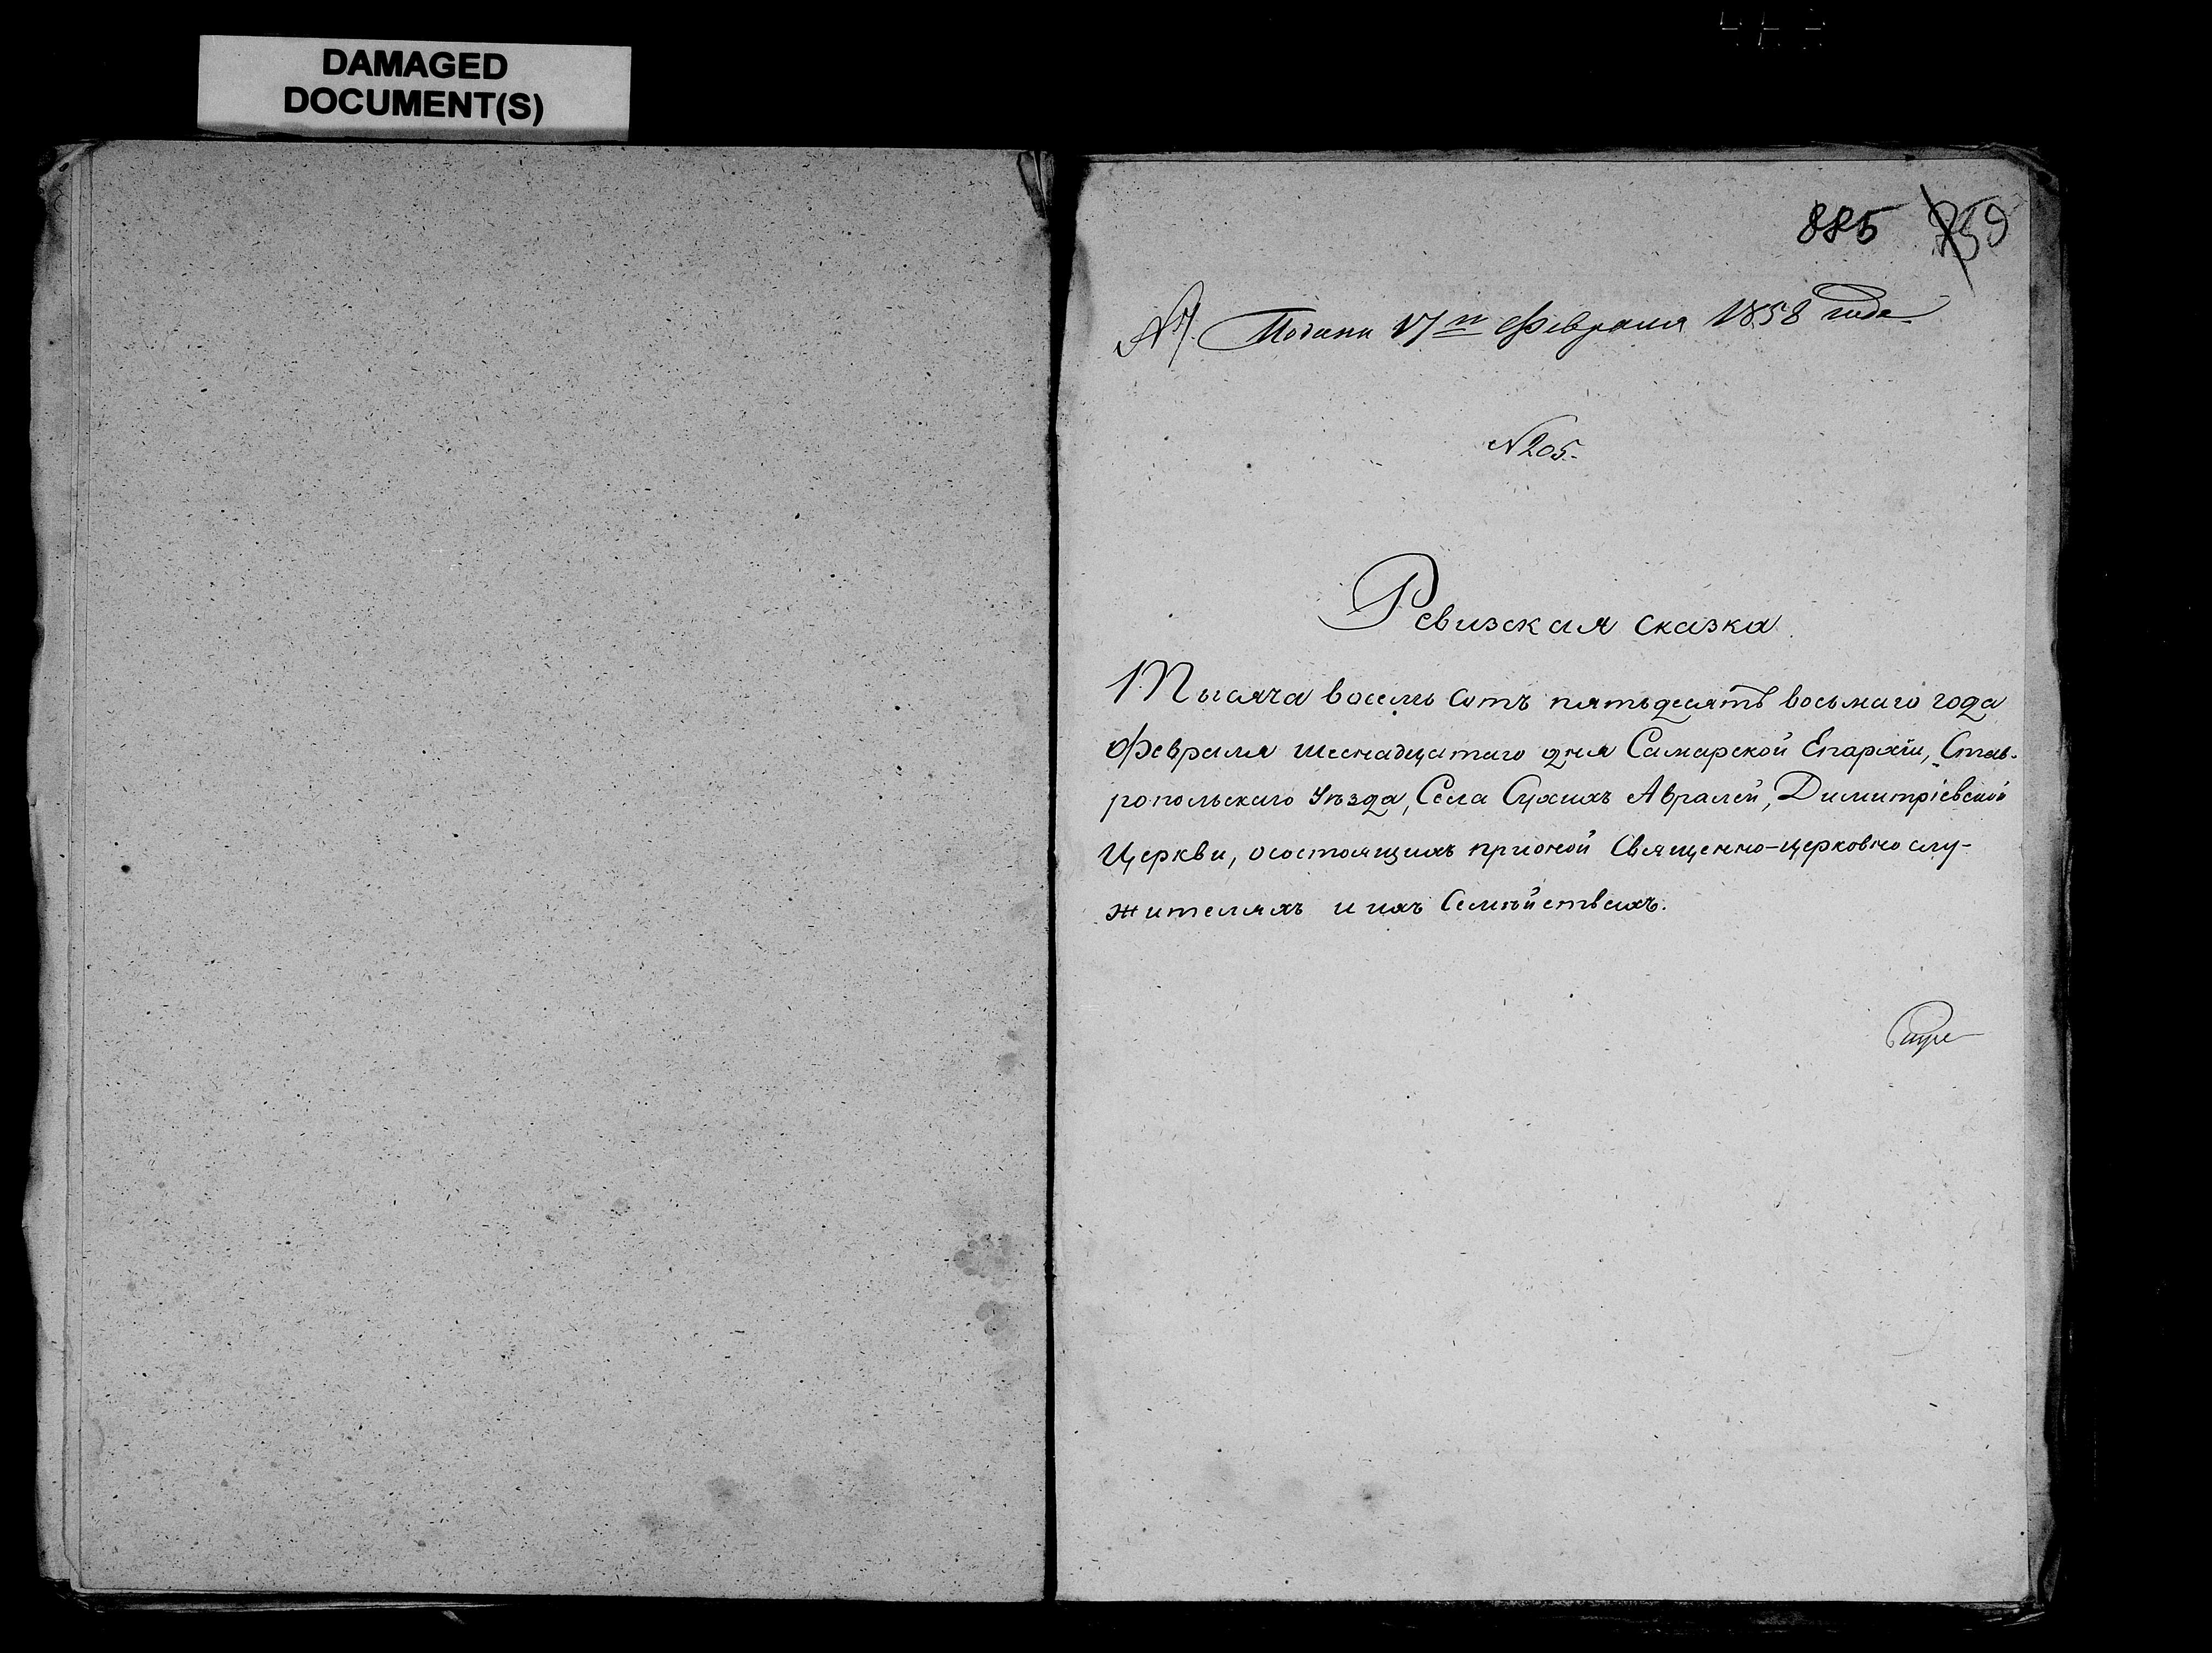 DAMAGED
DOCUMENT(S)
885 759
Подана 17го Февраля 1858 года
N 205.
Ревизская сказка
Тысяча восемь сотъ пятьдесятъ восьмаго года
Февраля шеснадцатаго дня Самарской Епархіи, Став-
ропольскаго Уѣзда, Села Сухихъ Авралей, Димитріевской
Церкви, осостоящихъ прионой Священно-церковно слу-
жителяхъ и ихъ Семѣйствахъ.